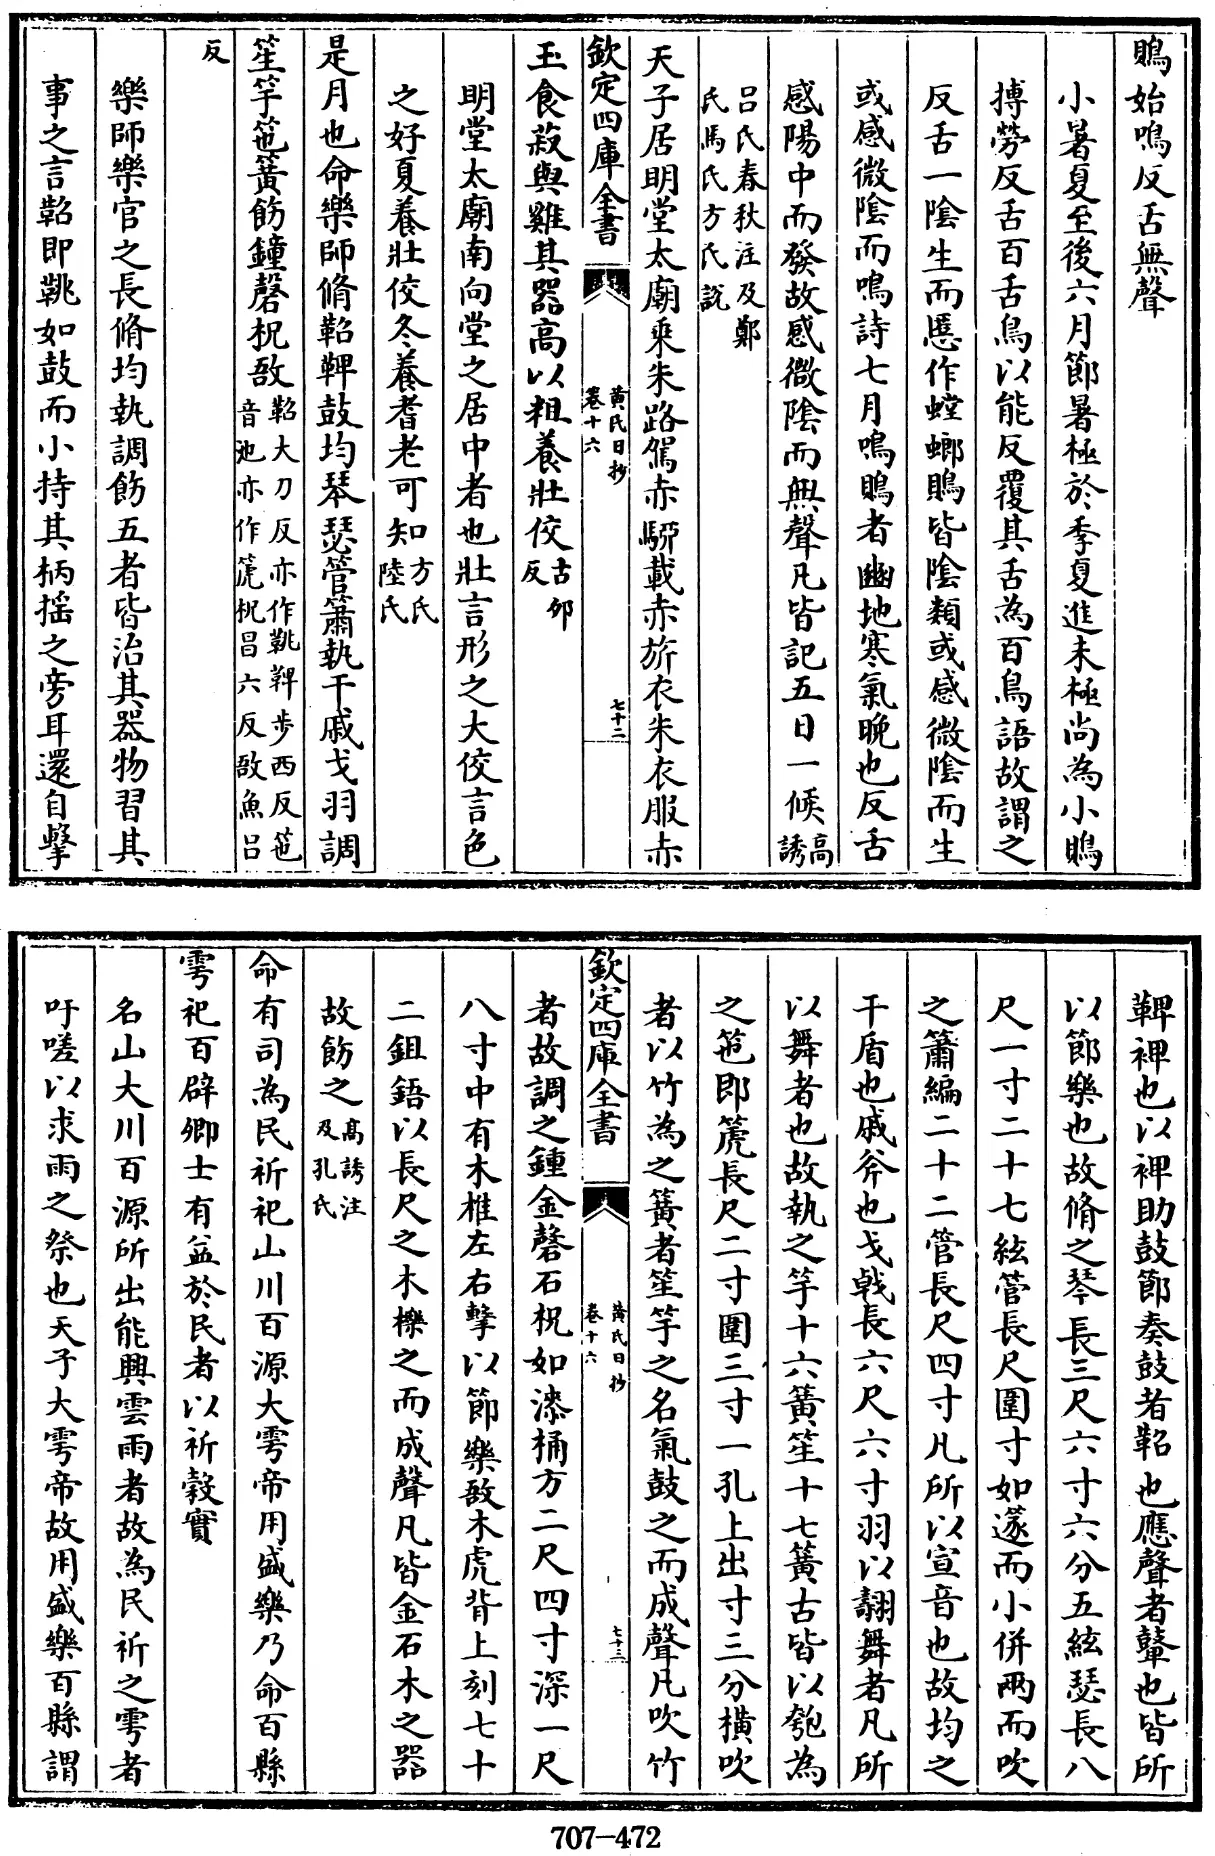 鵙始鳴反舌無聲
小暑夏至後六月節暑極於季夏進未極尚為小鵙
搏勞反舌百舌鳥以能反覆其舌為百鳥語故謂之
反舌一陰生而慝作螳螂鵙皆陰類或感微陰而生
或感微陰而鳴詩七月鳴鵙者豳地寒氣晚也反舌
感陽中而發故感微陰而無聲凡皆記五日一候高誘
呂氏春秋注及鄭氏馬氏方氏說
天子居明堂太廟乘朱路駕赤騮載赤旂衣朱衣服赤
欽定四庫全書 黃氏日抄 卷十六 七十二
玉食菽與雞其器高以粗養壯佼古卯反
明堂太廟南向堂之居中者也壯言形之大佼言色
之好夏養壯佼冬養耆老可知方氏陸氏
是月也命樂師脩鞀鞞鼓均琴瑟管簫執干戚戈羽調
笙竽笆簧飭鐘磬柷敔鞀大刀反亦作鞉鞞步西反笆音池亦作篪柷昌六反敔魚呂
反
樂師樂官之長脩均執調飭五者皆治其器物習其
事之言鞀即鞉如鼓而小持其柄搖之旁耳還自擊
鞞裨也以裨助鼓節奏鼓者鞀也應聲者鼙也皆所
以節樂也故脩之琴長三尺六寸六分五絃瑟長八
尺一寸二十七絃管長尺圍寸如篴而小併兩而吹
之簫編二十二管長尺四寸凡所以宣音也故均之
干盾也戚斧也戈戟長六尺六寸羽以翿舞者凡所
以舞者也故執之竽十六簧笙十七簧古皆以匏為
之笆即篪長尺二寸圍三寸一孔上出寸三分橫吹
者以竹為之簧者笙竽之名氣鼓之而成聲凡吹竹
欽定四庫全書 黃氏日抄 卷十六 七十三
者故調之鍾金磬石柷如漆桶方二尺四寸深一尺
八寸中有木椎左右擊以節樂敔木虎背上刻七十
二鉏鋙以長尺之木櫟之而成聲凡皆金石木之器
故飭之高誘注及孔氏
命有司為民祈祀山川百源大雩帝用盛樂乃命百縣
雩祀百辟卿士有益於民者以祈穀實
名山大川百源所出能興雲雨者故為民祈之雩者
吁嗟以求雨之祭也天子大雩帝故用盛樂百縣謂
707-472